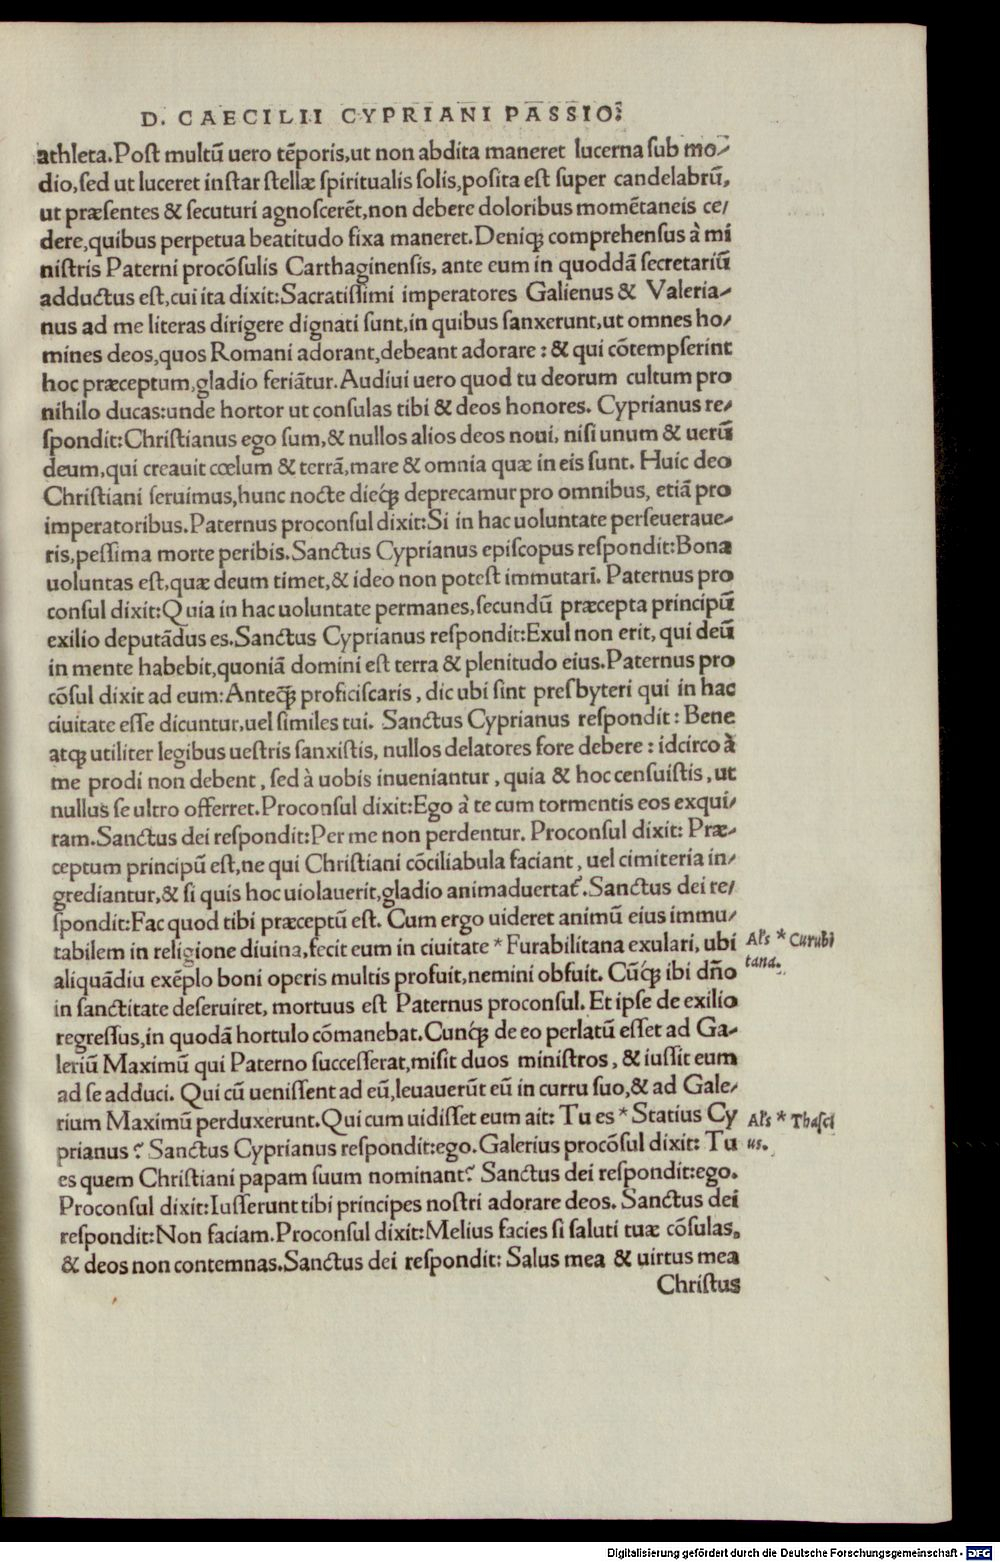 D. CAECILII CYPRIANI PASSIO.
athleta.Poſt multū uero tēporis,ut non abdita maneret lucerna ſub mo⸗
dio,ſed ut luceret inſtar ſtellæ ſpiritualis ſolis,poſita eſt ſuper candelabrū,
ut præſentes & ſecuturi agnoſcerēt,non debere doloribus momētaneis ce⸗
dere,quibus perpetua beatitudo fixa maneret.Deniqꝫ comprehenſus à mi
niſtris Paterni procōſulis Carthaginenſis, ante eum in quoddā ſecretariū
adductus eſt,cui ita dixit:Sacratiſſimi imperatores Galienus & Valeria⸗
nus ad me literas dirigere dignati ſunt,in quibus ſanxerunt,ut omnes ho⸗
mines deos,quos Romani adorant,debeant adorare : & qui cōtempſerint
hoc præceptum,gladio feriātur.Audiui uero quod tu deorum cultum pro
nihilo ducas:unde hortor ut conſulas tibi & deos honores. Cyprianus re⸗
ſpondit:Chriſtianus ego ſum,& nullos alios deos noui, niſi unum & uerū
deum,qui creauit cœlum & terrā,mare & omnia quæ in eis ſunt. Huic deo
Chriſtiani ſeruimus,hunc nocte dieqꝫ deprecamur pro omnibus, etiā pro
imperatoribus.Paternus proconſul dixit:Si in hac uoluntate perſeueraue⸗
ris,peſſima morte peribis.Sanctus Cyprianus epiſcopus reſpondit:Bona
uoluntas eſt,quæ deum timet,& ideo non poteſt immutari. Paternus pro
conſul dixit:Quia in hac uoluntate permanes,ſecundū præcepta principū
exilio deputādus es.Sanctus Cyprianus reſpondit:Exul non erit, qui deū
in mente habebit,quoniā domini eſt terra & plenitudo eius.Paternus pro
cōſul dixit ad eum:Anteqꝫ proficiſcaris , dic ubi ſint preſbyteri qui in hac
ciuitate eſſe dicuntur,uel ſimiles tui. Sanctus Cyprianus reſpondit : Bene
atqꝫ utiliter legibus ueſtris ſanxiſtis, nullos delatores fore debere : idcirco à
me prodi non debent , ſed à uobis inueniantur , quia & hoc cenſuiſtis , ut
nullus ſe ultro offerret.Proconſul dixit:Ego à te cum tormentis eos exqui⸗
ram.Sanctus dei reſpondit:Per me non perdentur. Proconſul dixit: Præ⸗
ceptum principū eſt,ne qui Chriſtiani cōciliabula faciant , uel cimiteria in⸗
grediantur,& ſi quis hoc uiolauerit,gladio animaduertat᷑.Sanctus dei re⸗
ſpondit:Fac quod tibi præceptū eſt. Cum ergo uideret animū eius immu⸗
tabilem in religione diuina,fecit eum in ciuitate * Furabilitana exulari, ubi
Al's * Curubi
tana.
aliquādiu exēplo boni operis multis profuit,nemini obfuit. Cūqꝫ ibi dño
in ſanctitate deſeruiret, mortuus eſt Paternus proconſul. Et ipſe de exilio
regreſſus,in quodā hortulo cōmanebat.Cunqꝫ de eo perlatū eſſet ad Ga⸗
leriū Maximū qui Paterno ſucceſſerat,miſit duos miniſtros , & iuſſit eum
ad ſe adduci. Qui cū ueniſſent ad eū,leuauerūt eū in curru ſuo,& ad Gale⸗
rium Maximū perduxerunt.Qui cum uidiſſet eum ait: Tu es * Statius Cy
Al's * Thaſci
us.
prianus ? Sanctus Cyprianus reſpondit:ego.Galerius procōſul dixit: Tu
es quem Chriſtiani papam ſuum nominant? Sanctus dei reſpondit:ego.
Proconſul dixit:Iuſſerunt tibi principes noſtri adorare deos. Sanctus dei
reſpondit:Non faciam.Proconſul dixit:Melius facies ſi ſaluti tuæ cōſulas,
& deos non contemnas.Sanctus dei reſpondit: Salus mea & uirtus mea
Chriſtus
Digitalisierung gefördert durch die Deutsche Forschungsgemeinschaft - DFG